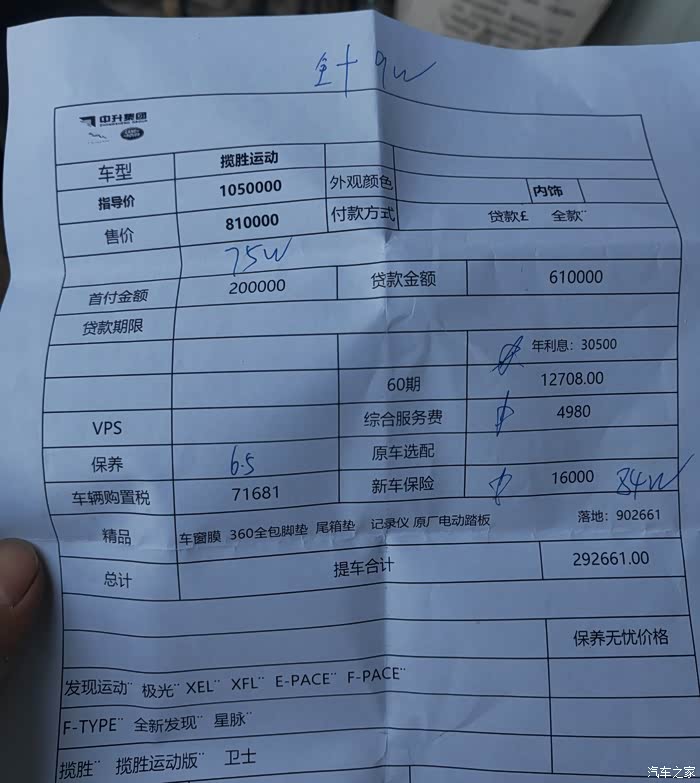 全十9W
中升集团
车型 揽胜运动
指导价 1050000 外观颜色 内饰
售价 810000 付款方式 贷款£ 全款¨
75W
首付金额 200000 贷款金额 610000
贷款期限
年利息：30500
60期 12708.00
VPS 综合服务费 4980
保养 6.5 原车选配
车辆购置税 71681 新车保险 16000 84W
精品 车窗膜 360全包脚垫 尾箱垫 记录仪 原厂电动踏板 落地：902661
总计 提车合计 292661.00
保养无忧价格
发现运动¨ 极光¨ XEL¨ XFL¨ E-PACE¨ F-PACE¨
F-TYPE¨ 全新发现¨ 星脉¨
揽胜¨ 揽胜运动版¨ 卫士
汽车之家